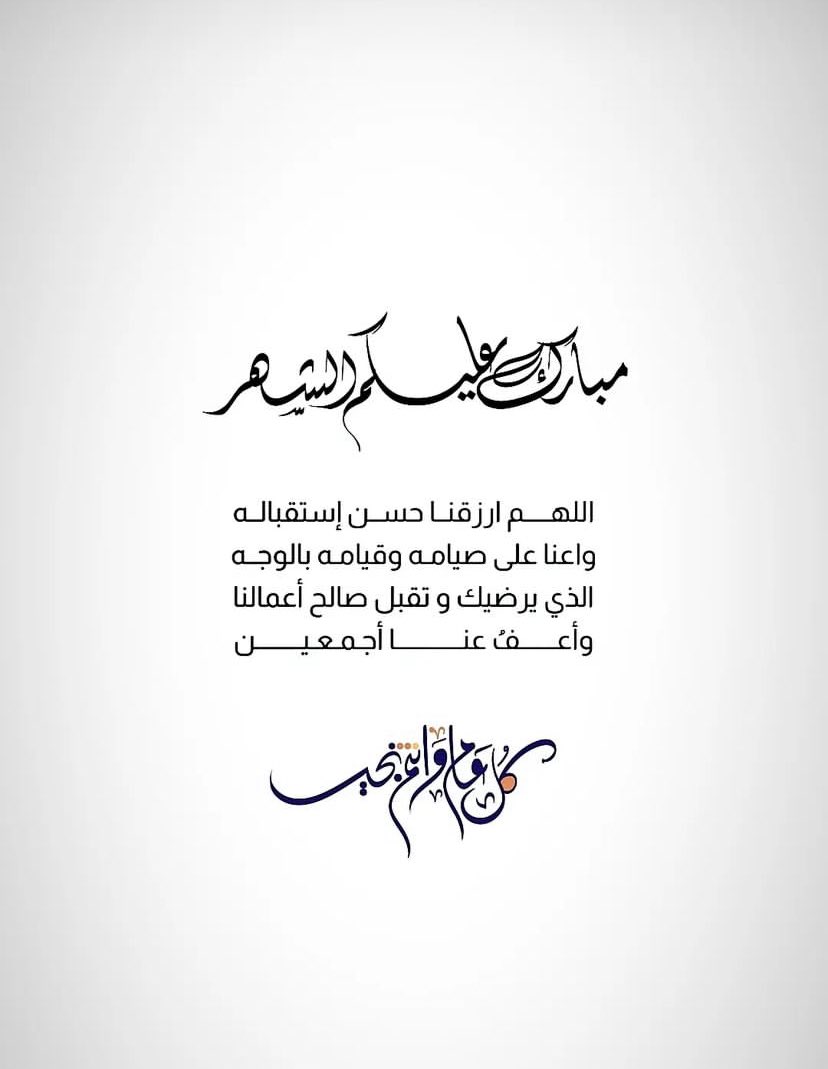 مبارك عليكم الشهر
اللهم ارزقنا حسن إستقباله
واعنا على صيامه وقيامه بالوجه
الذي يرضيك و تقبل صالح أعمالنا
وأعفُ عنا أجمعين
كُل عام وَانتم بخير